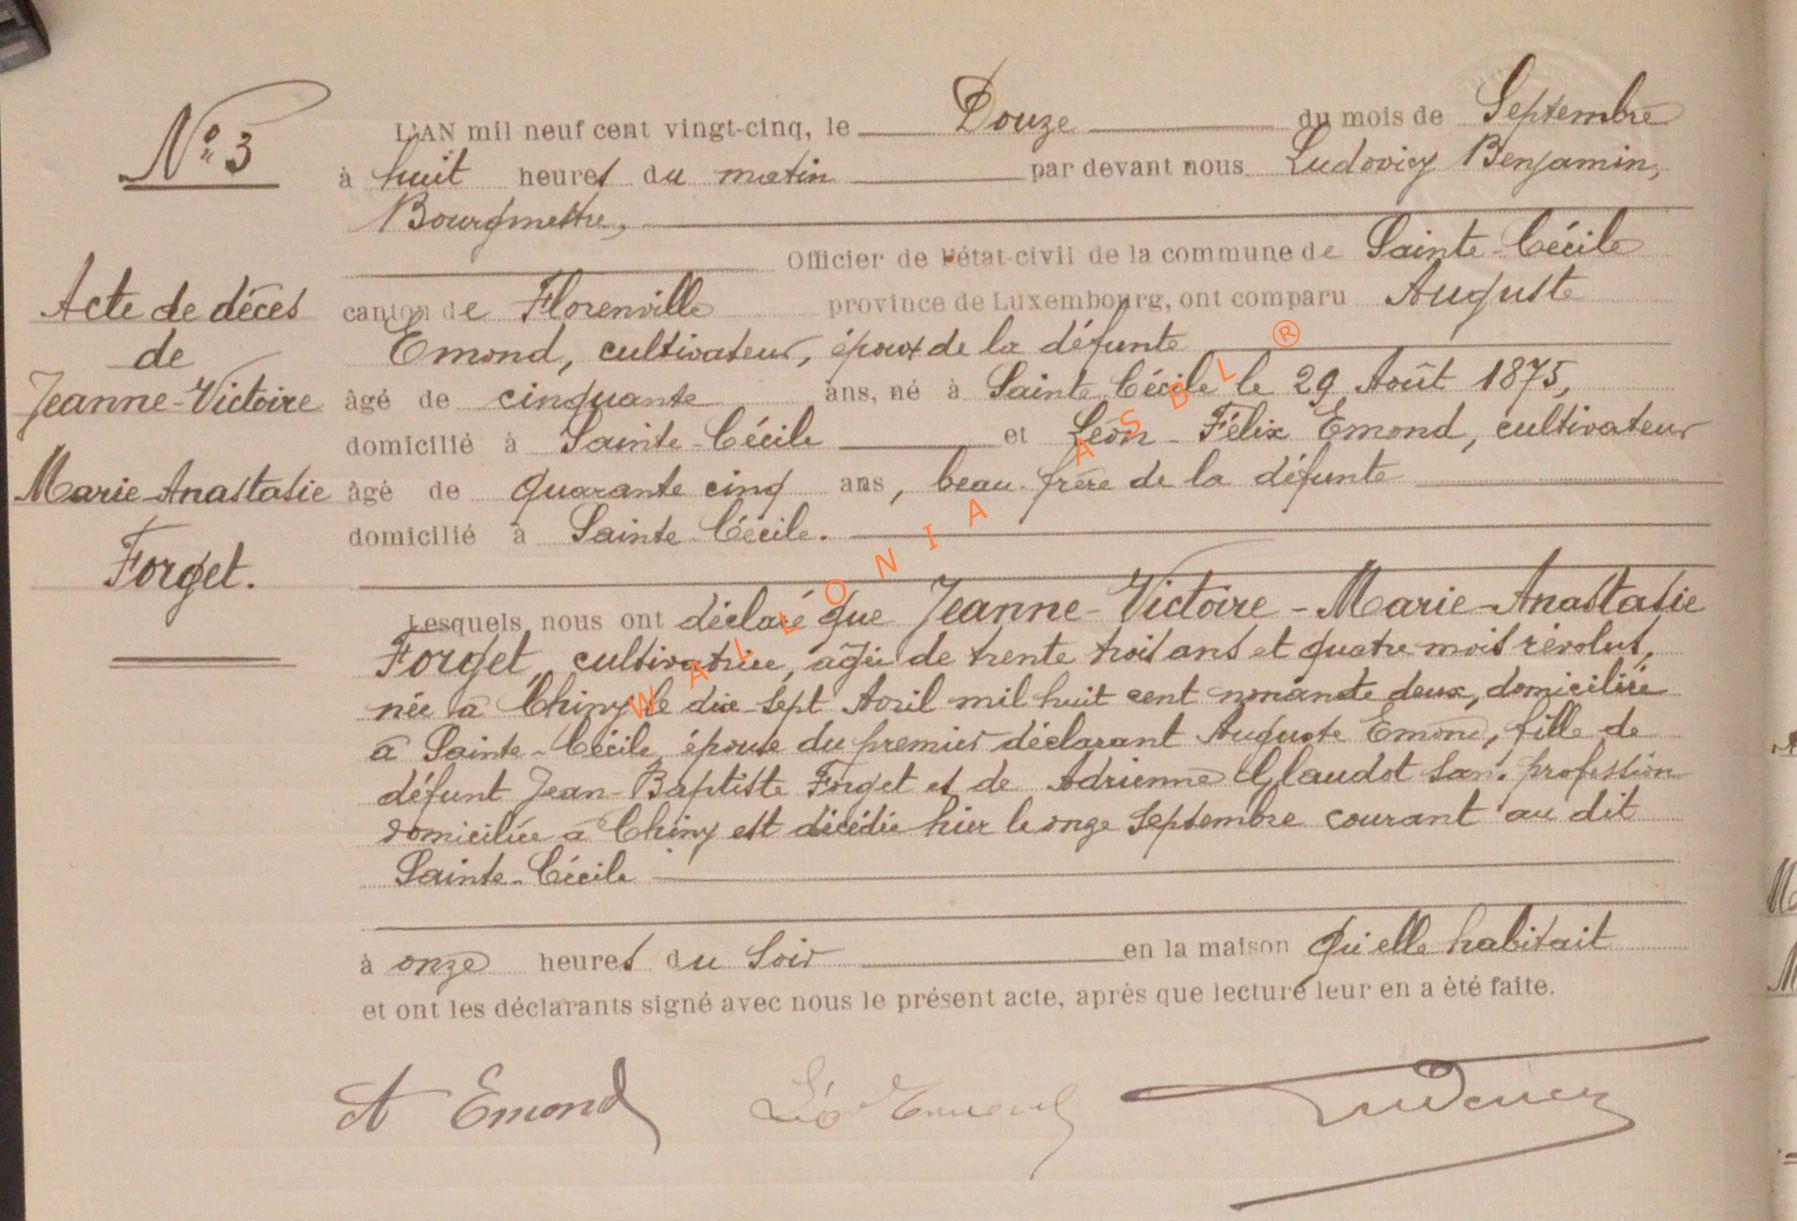 N° 3
Acte de décès
de
Jeanne-Victoire
Marie-Anastasie
Forget.
L'AN mil neuf cent vingt-cinq, le Douze du mois de Septembre
à huit heures du matin par devant nous Ludovicy Benjamin,
Bourgmestre,
Officier de l'état-civil de la commune de Sainte-Cécile
canton de Florenville province de Luxembourg, ont comparu Auguste
Emond, cultivateur, époux de la défunte
âgé de cinquante ans, né à Sainte Cécile le 29 Août 1875,
domicilié à Sainte-Cécile et Léon-Félix Emond, cultivateur
âgé de quarante cinq ans, beau-frère de la défunte
domicilié à Sainte-Cécile.
Lesquels nous ont déclaré que Jeanne-Victoire-Marie-Anastasie
Forget, cultivatrice, âgée de trente trois ans et quatre mois révolus,
née à Chiny le dix-sept Avril mil huit cent nonante deux, domiciliée
à Sainte-Cécile, épouse du premier déclarant Auguste Emond, fille de
défunt Jean-Baptiste Forget et de Adrienne Glaudot sans profession
domiciliée à Chiny est décédée hier le onze Septembre courant au dit
Sainte-Cécile
à onze heures du soir en la maison qu'elle habitait
et ont les déclarants signé avec nous le présent acte, après que lecture leur en a été faite.
A Emond Léon Emond
WALLONIA ASBL ®